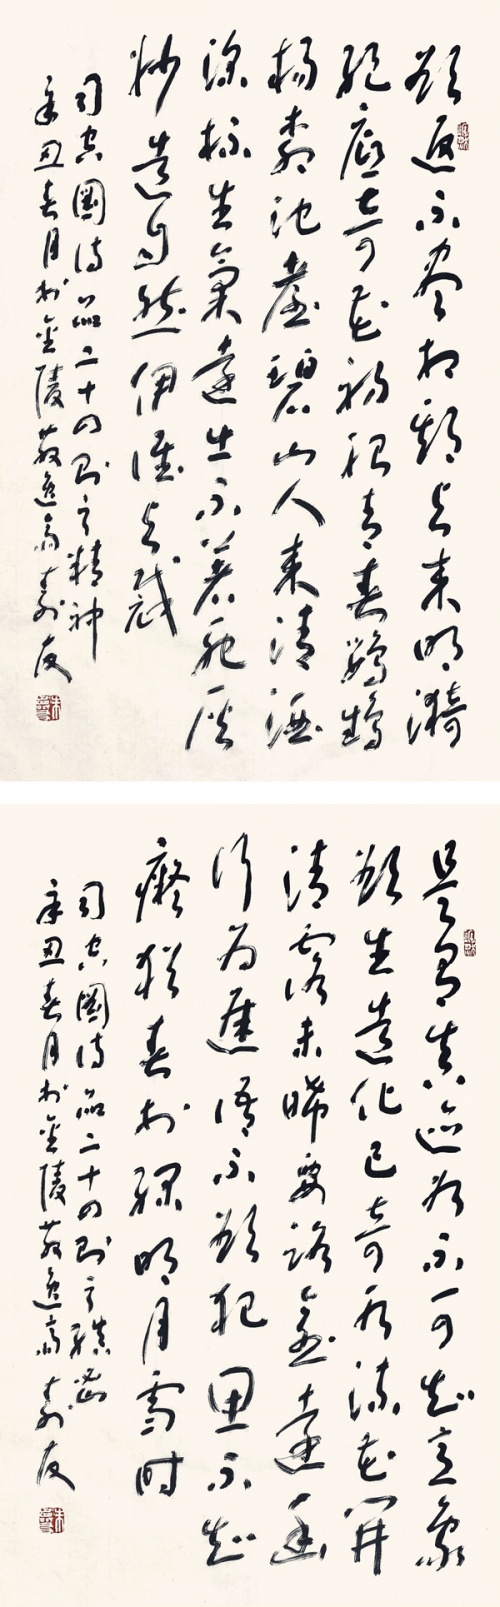 欲返不盡相期与来明漪
绝底奇花初胎青春鹦鹉
杨柳池臺碧山人来清酒
深杯生氣遠出不著死灰
妙造自然伊谁与裁
司空圖诗品二十四则之精神
辛丑春月於金陵散逸斋寿友
是有真迹如不可知意象
欲生造化已奇水流花開
清露未晞要路愈遠幽
行为遲语不欲犯思不欲
癡犹春於绿明月雪时
司空圖诗品二十四则之缜密
辛丑春月於金陵散逸斋寿友